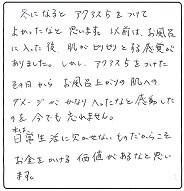 冬になると アクアス5をつけて
よかったなと思います。以前は、お風呂
に入った後、肌がピリピリと弱感覚が
ありました。しかし、アクアス5をつけた
その日から お風呂上がりの肌への
ダメージが かなりへったなと感動した
のを今でも忘れません。
水は、
日常生活に欠かせないものだからこそ
お金をかける価値があるなと思い
ます。